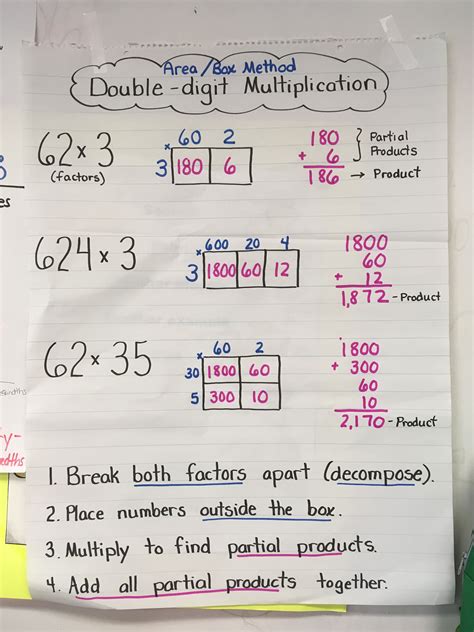 Area/Box Method
Double-digit Multiplication
62 x 3
(factors)
x 60 2
3 180 6
180
+ 6
186 → Product
Partial
Products
624 x 3
x 600 20 4
3 1800 60 12
1800
60
+ 12
1,872 - Product
62 x 35
x 60 2
30 1800 60
5 300 10
1800
+ 300
60
10
2,170 - Product
1. Break both factors apart (decompose).
2. Place numbers outside the box.
3. Multiply to find partial products.
4. Add all partial products together.
es
y-